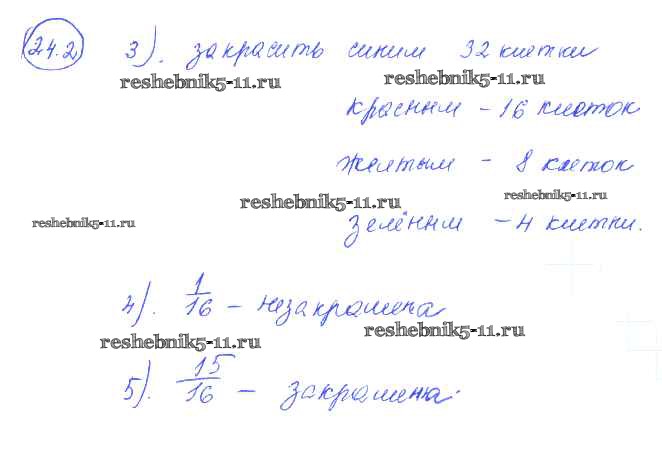 24.2 3). закрасить синим 32 клетки
reshebnik5-11.ru reshebnik5-11.ru
красным - 16 клеток
желтым - 8 клеток
reshebnik5-11.ru reshebnik5-11.ru
reshebnik5-11.ru
зелёным - 4 клетки.
4). 1/16 - незакрашена
reshebnik5-11.ru reshebnik5-11.ru
5). 15/16 - закрашена.